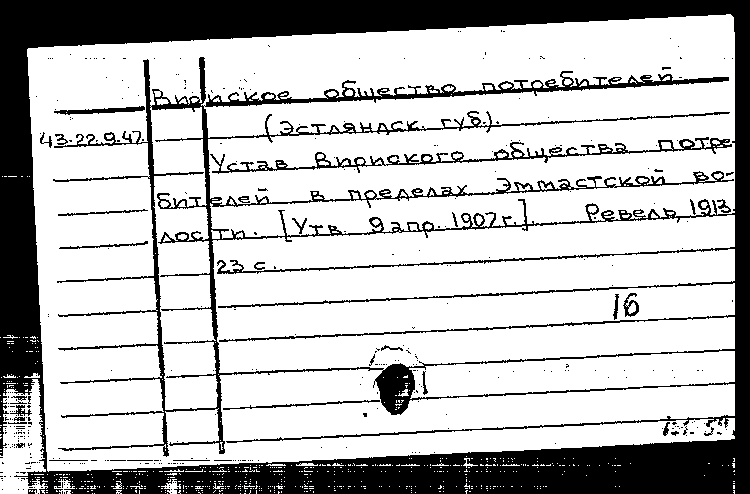 Вирпское общество потребителей
43.22.9.47. (Эстляндск. губ.).
Устав Вирпского общества потре-
бителей в пределах Эммастской во-
лости. [Утв. 9 апр. 1907 г.]. Ревель, 1913.
23 с.
16